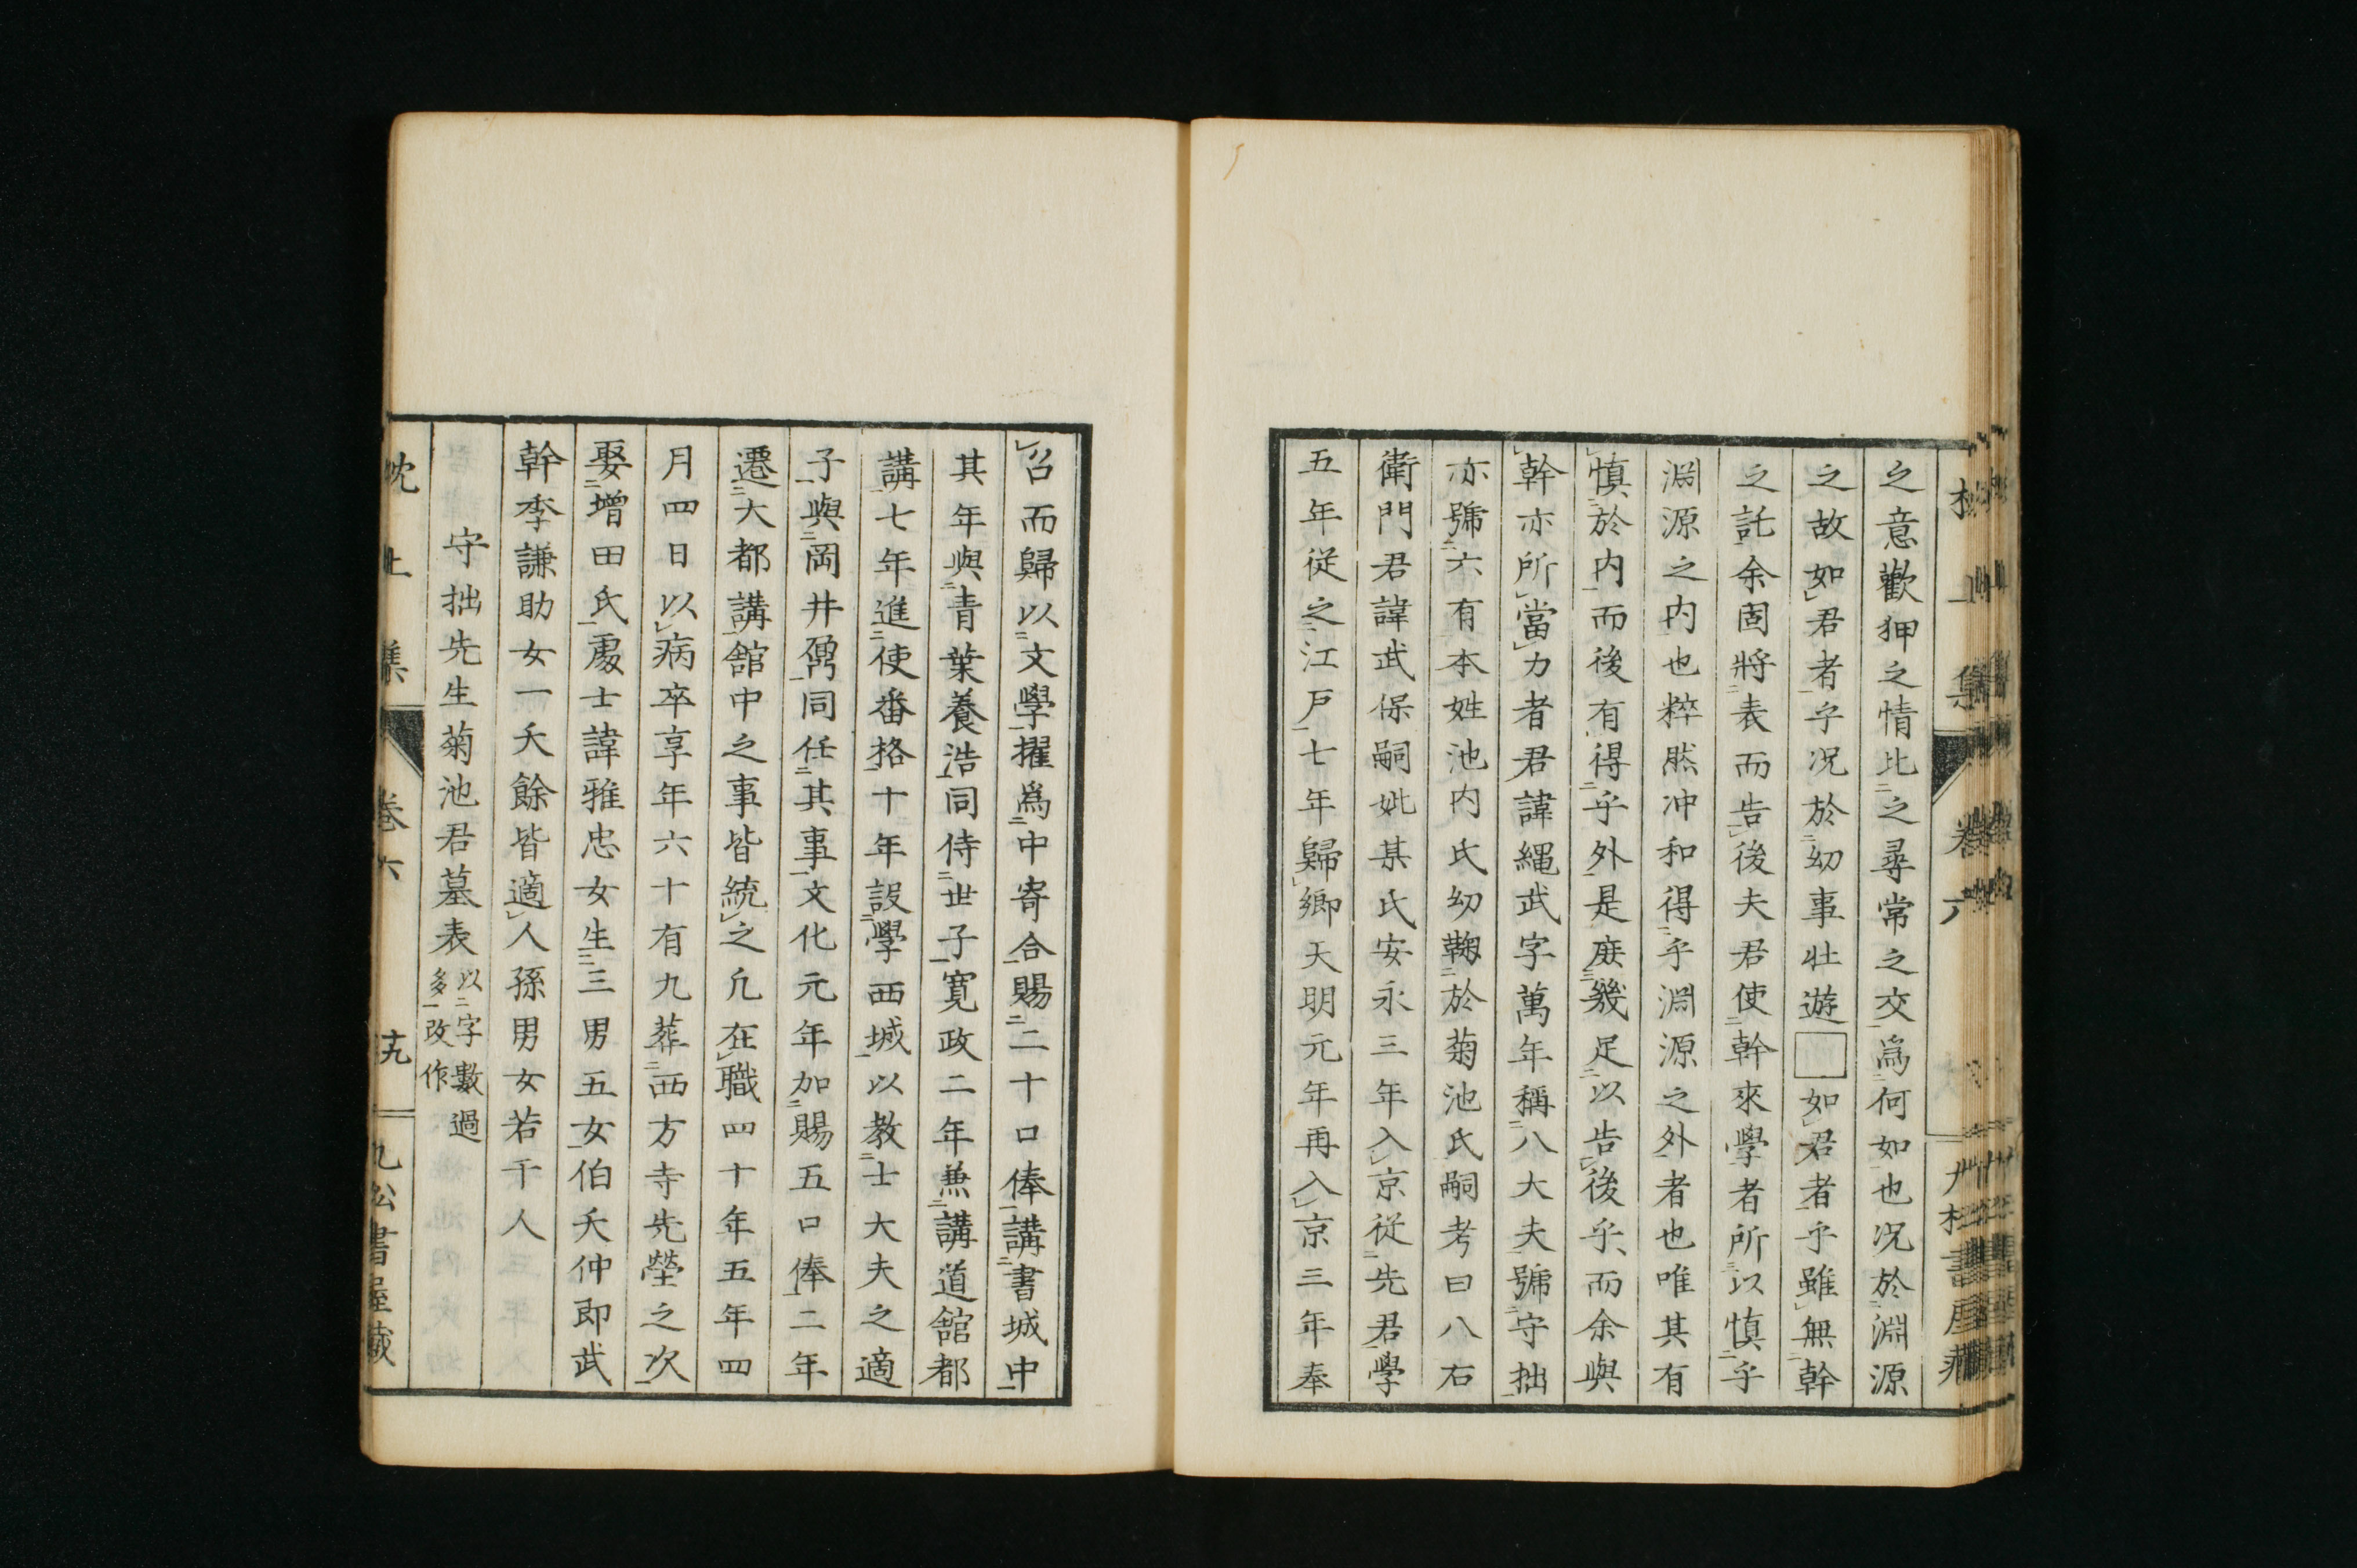 之意歡狎之情比之尋常之交爲何如也况於淵源
之故如君者乎况於幼事壯遊□如君者乎雖無幹
之託余固將表而告後夫君使幹來學者所以慎乎
淵源之内也粹然冲和得乎淵源之外者也唯其有
慎於内而後有得乎外是庶幾足以告後乎而余與
幹亦所當力者君諱繩武字萬年稱八大夫號守拙
亦號六有本姓池内氏幼鞠於菊池氏嗣考曰八右
衛門君諱武保嗣妣某氏安永三年入京從先君學
五年從之江戸七年歸鄉天明元年再入京三年奉
召而歸以文學擢爲中寄合賜二十口俸講書城中
其年與青葉養浩同侍世子寛政二年兼講道館都
講七年進使番格十年設學西城以教士大夫之適
子與岡井鼐同任其事文化元年加賜五口俸二年
遷大都講舘中之事皆統之凡在職四十年五年四
月四日以病卒享年六十有九葬西方寺先塋之次
娶增田氏處士諱雅忠女生三男五女伯夭仲即武
幹季謙助女一夭餘皆適人孫男女若干人
守拙先生菊池君墓表 以字數過多改作
上集 卷六 十九 九松書屋藏